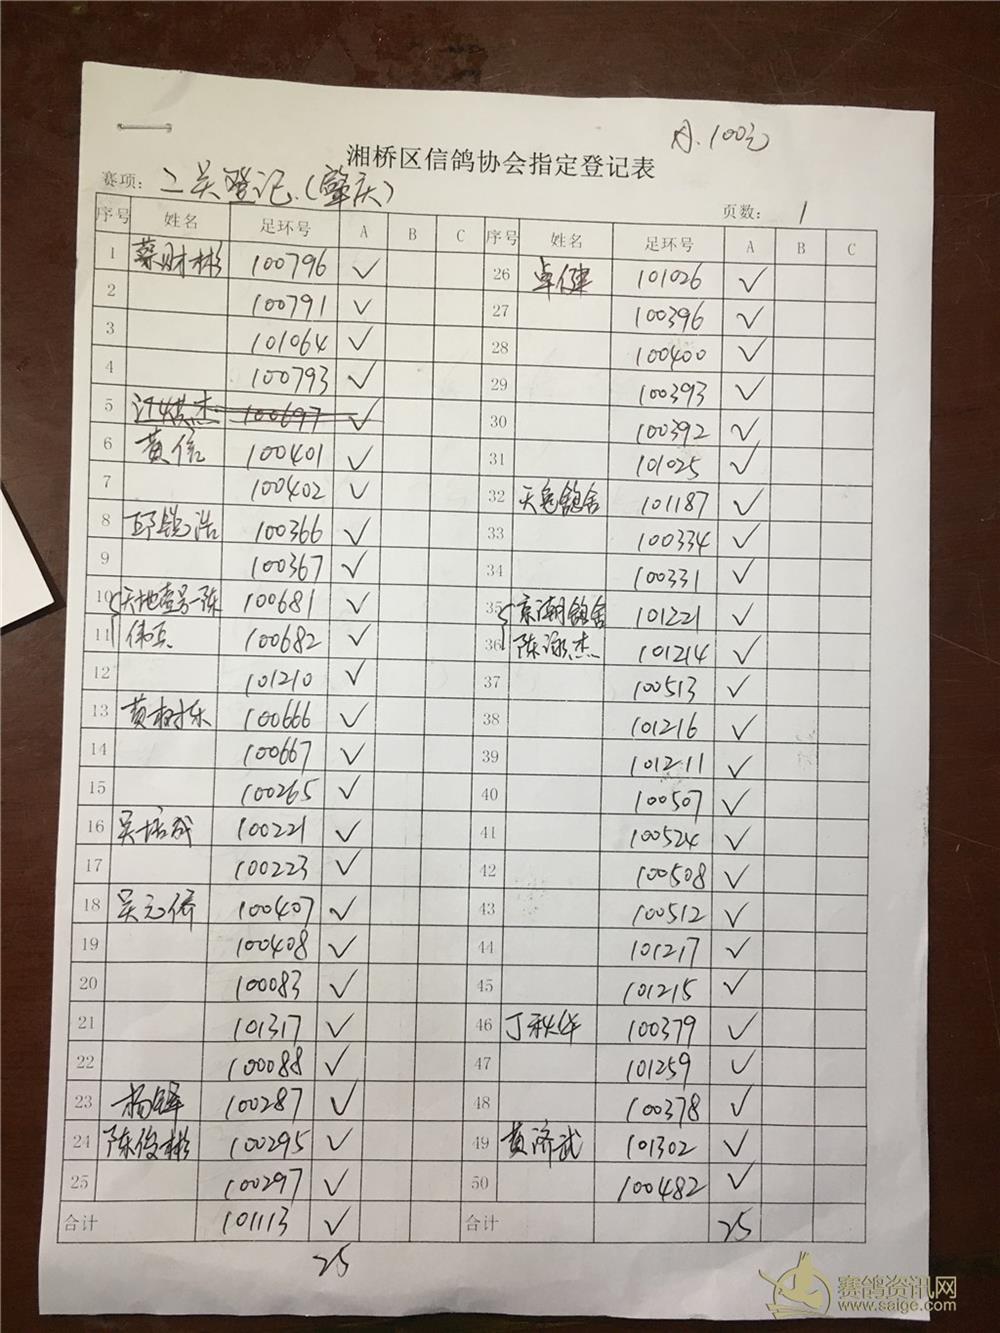 A. 100元
湘桥区信鸽协会指定登记表
赛项: 二关登记(肇庆)
页数: 1
序号 姓名 足环号 A B C 序号 姓名 足环号 A B C
1 蔡财彬 100796 ✓ 26 卓健 101026 ✓
2 100791 ✓ 27 100396 ✓
3 101064 ✓ 28 100400 ✓
4 100793 ✓ 29 100393 ✓
5 江 杰 100697 ✓ 30 100392 ✓
6 黄信 100401 ✓ 31 101025 ✓
7 100402 ✓ 32 天 鸽舍 101187 ✓
8 邱锐浩 100366 ✓ 33 100334 ✓
9 100367 ✓ 34 100331 ✓
10 天地壹号-陈 100681 ✓ 35 京潮鸽舍 101221 ✓
11 伟兵 100682 ✓ 36 陈 杰 101214 ✓
12 101210 ✓ 37 100513 ✓
13 黄树乐 100666 ✓ 38 101216 ✓
14 100667 ✓ 39 101211 ✓
15 100265 ✓ 40 100507 ✓
16 吴培成 100221 ✓ 41 100524 ✓
17 100223 ✓ 42 100508 ✓
18 吴元侨 100407 ✓ 43 100512 ✓
19 100408 ✓ 44 101217 ✓
20 100083 ✓ 45 101215 ✓
21 101317 ✓ 46 丁秋华 100379 ✓
22 100088 ✓ 47 101259 ✓
23 杨铎 100287 ✓ 48 100378 ✓
24 陈俊彬 100295 ✓ 49 黄济武 101302 ✓
25 100297 ✓ 50 100482 ✓
合计 101113 ✓ 合计 25
25
赛鸽资讯网
www.saige.com